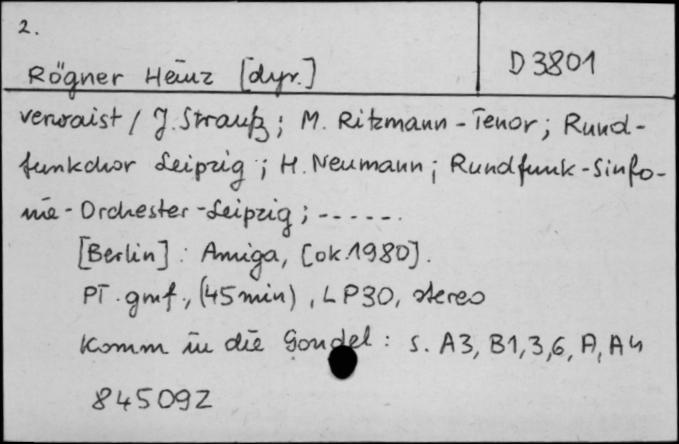 2.
Rögner Heinz [dyr.]
D 3801
verwaist / J. Strauß; M. Ritzmann - Tenor; Rund-
funkchor Leipzig; H. Neumann; Rundfunk-Sinfo-
nie-Orchester-Leipzig; ------.
[Berlin] : Amiga, [ok. 1980].
Pł. gmf., (45 min), LP30, stereo
Komm in die Gondel : s. A3, B1,3,6, A, A4
845092